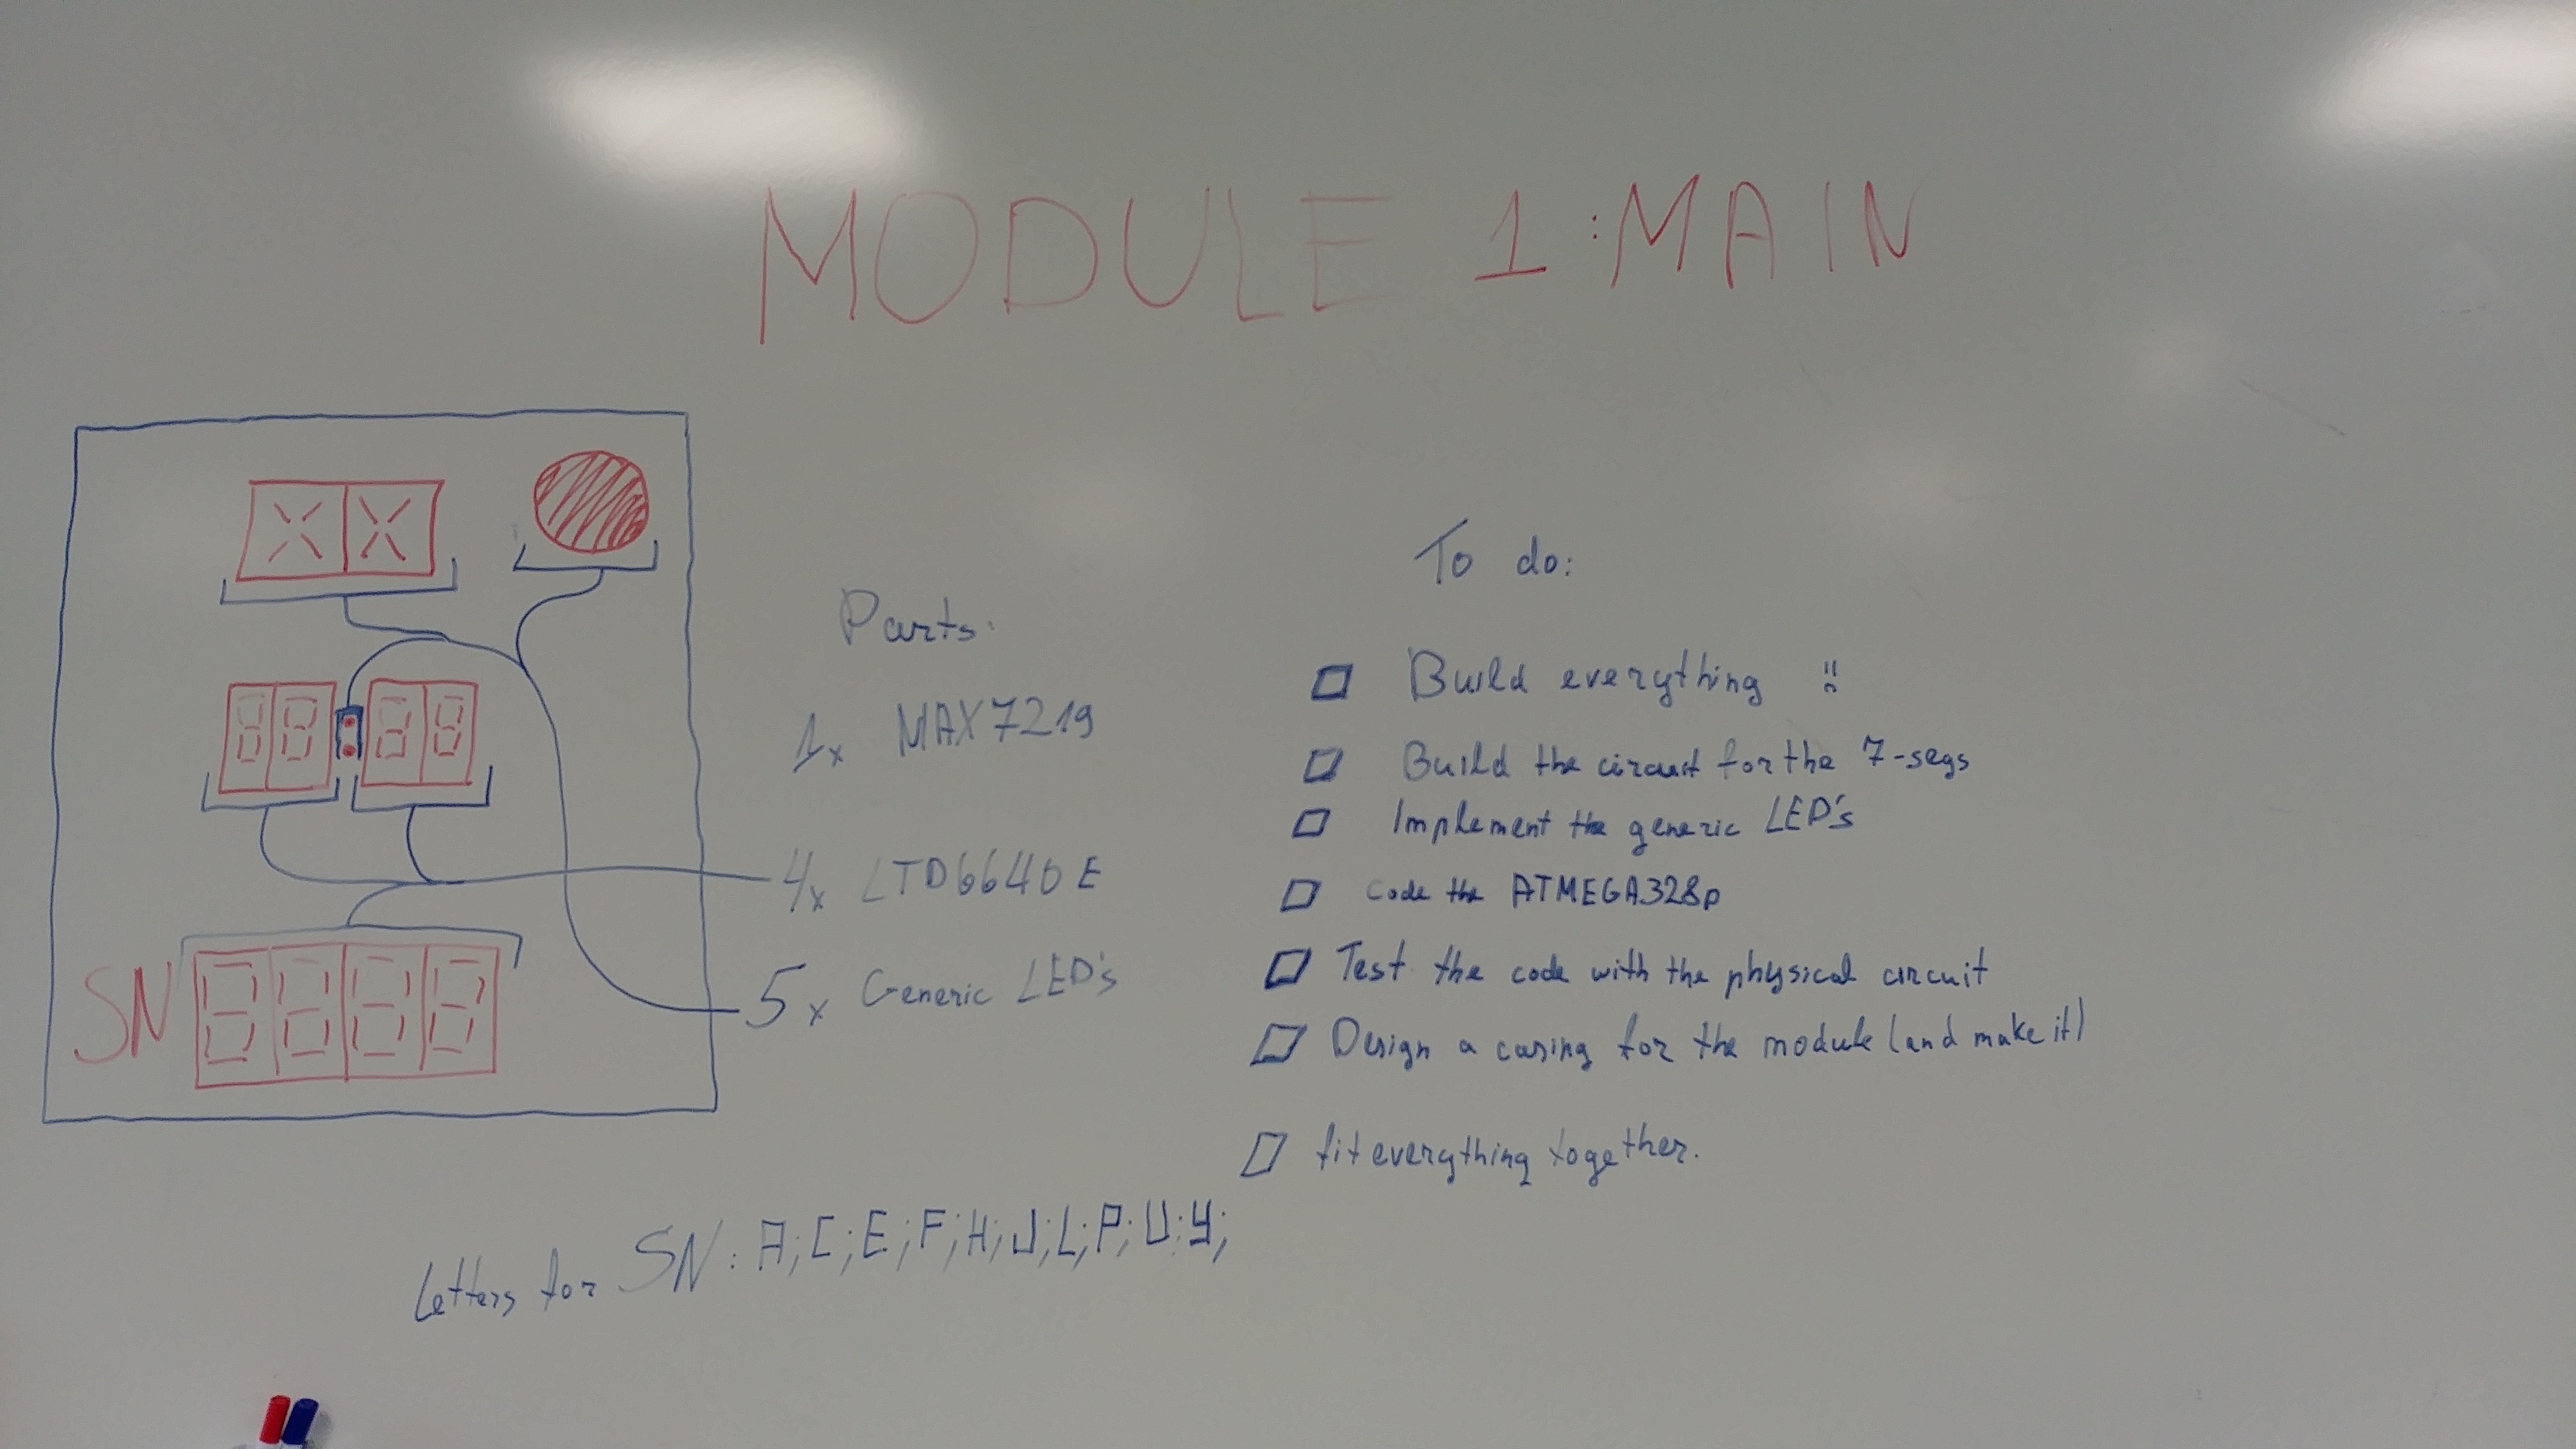 MODULE 1:MAIN
Parts:
1x MAX7219
4x LTD6640E
5x Generic LED's
SN
To do:
Build everything
Build the circuit for the 7-segs
Implement the generic LED's
Code the ATMEGA328p
Test the code with the physical circuit
Design a casing for the module (and make it)
fit everything together.
Letters for SN: A;C;E;F;H;J;L;P;U;Y;